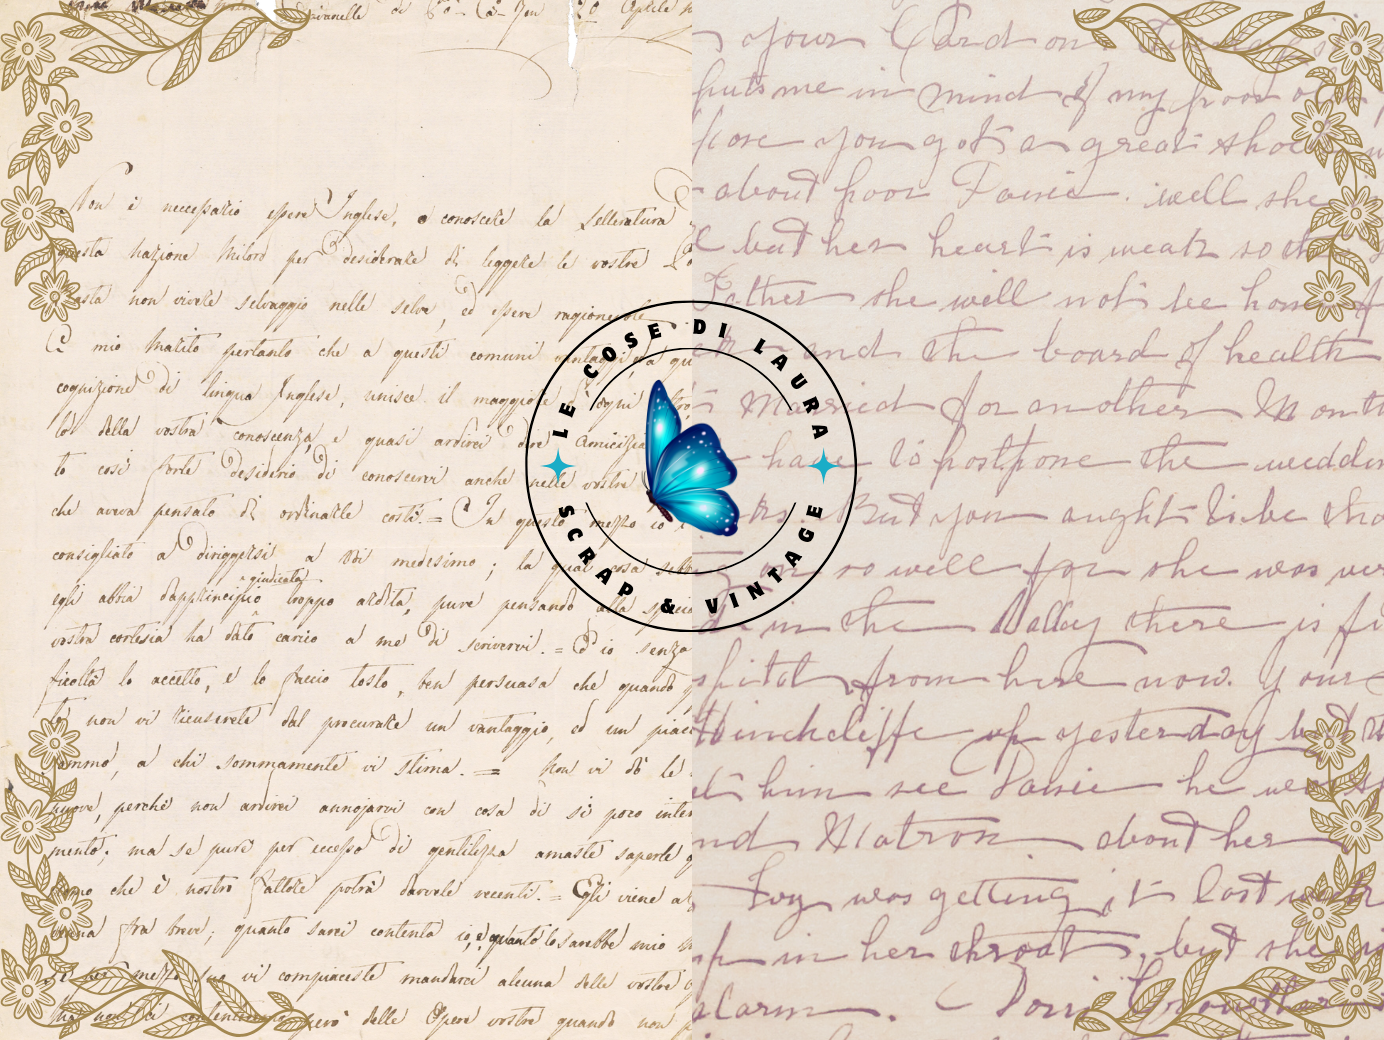 Non è necessario essere Inglese, o conoscere la Letteratura
questa nazione Milord per desiderare di leggere le vostre
basta non vivere selvaggio nelle selve, ed essere ragionevole
mio Marito pertanto che a questi comuni vantaggi, da
cognizione di lingua Inglese, unisce il maggiore d'ogni
lo della vostra conoscenza, e quasi ardirei dire Amicizia
to così forte desiderio di conoscervi anche nelle vostre
che aveva pensato di ordinarle costì. = In questo mezzo io
consigliato a diriggersi a Voi medesimo; la qual cosa sebb
giudicata
egli abbia dapprincipio troppo ardita, pure pensando alla
vostra cortesia ha dato carico a me di scrivervi. = Ed io senza
ficoltà lo accetto, e lo faccio tosto, ben persuasa che quando
non vi ricuserete dal procurare un vantaggio, ed un piac
ammo, a chi sommamente vi stima. = Non vi dò le
nuove, perchè non ardirei annojarvi con cosa di sì poco inter
mento; ma se pure per eccesso di gentilezza amaste saperle
che è nostro Fattore potrà darvele recenti. = Egli viene a
fra breve; quanto sarei contenta io, e quanto lo sarebbe mio
mezzo suo vi compiaceste mandarci alcuna delle vostre
però delle Opere vostre quando non
your Card on
puts me in mind of my poor
pose you got a great shock
about poor Fanie. well she
but her heart is weak so the
Father she will not be home
and the board of health
Married for another Month
have to postpone the weddin
But you aught to be tha
so well for she was ver
in the Valley there is fi
spital from here now. Your
Hinchcliffe up yesterday but
him see Fanie he
nd Matron about her
Ivy was getting it last week
up in her throat, but she is
alarm.
LE COSE DI LAURA
SCRAP & VINTAGE